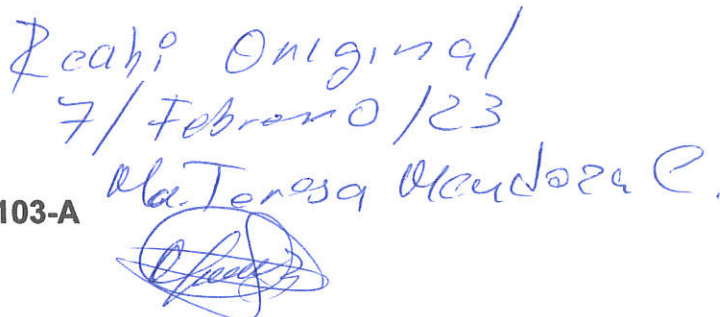 Recabi Original
7/Febrero/23
Ma. Teresa Mendoza C.
103-A